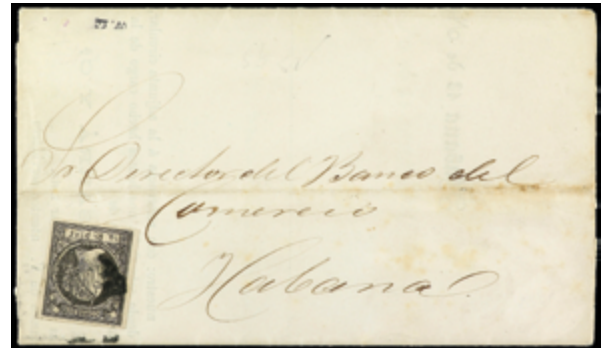 Sr Director del Banco del
Comercio
Habana